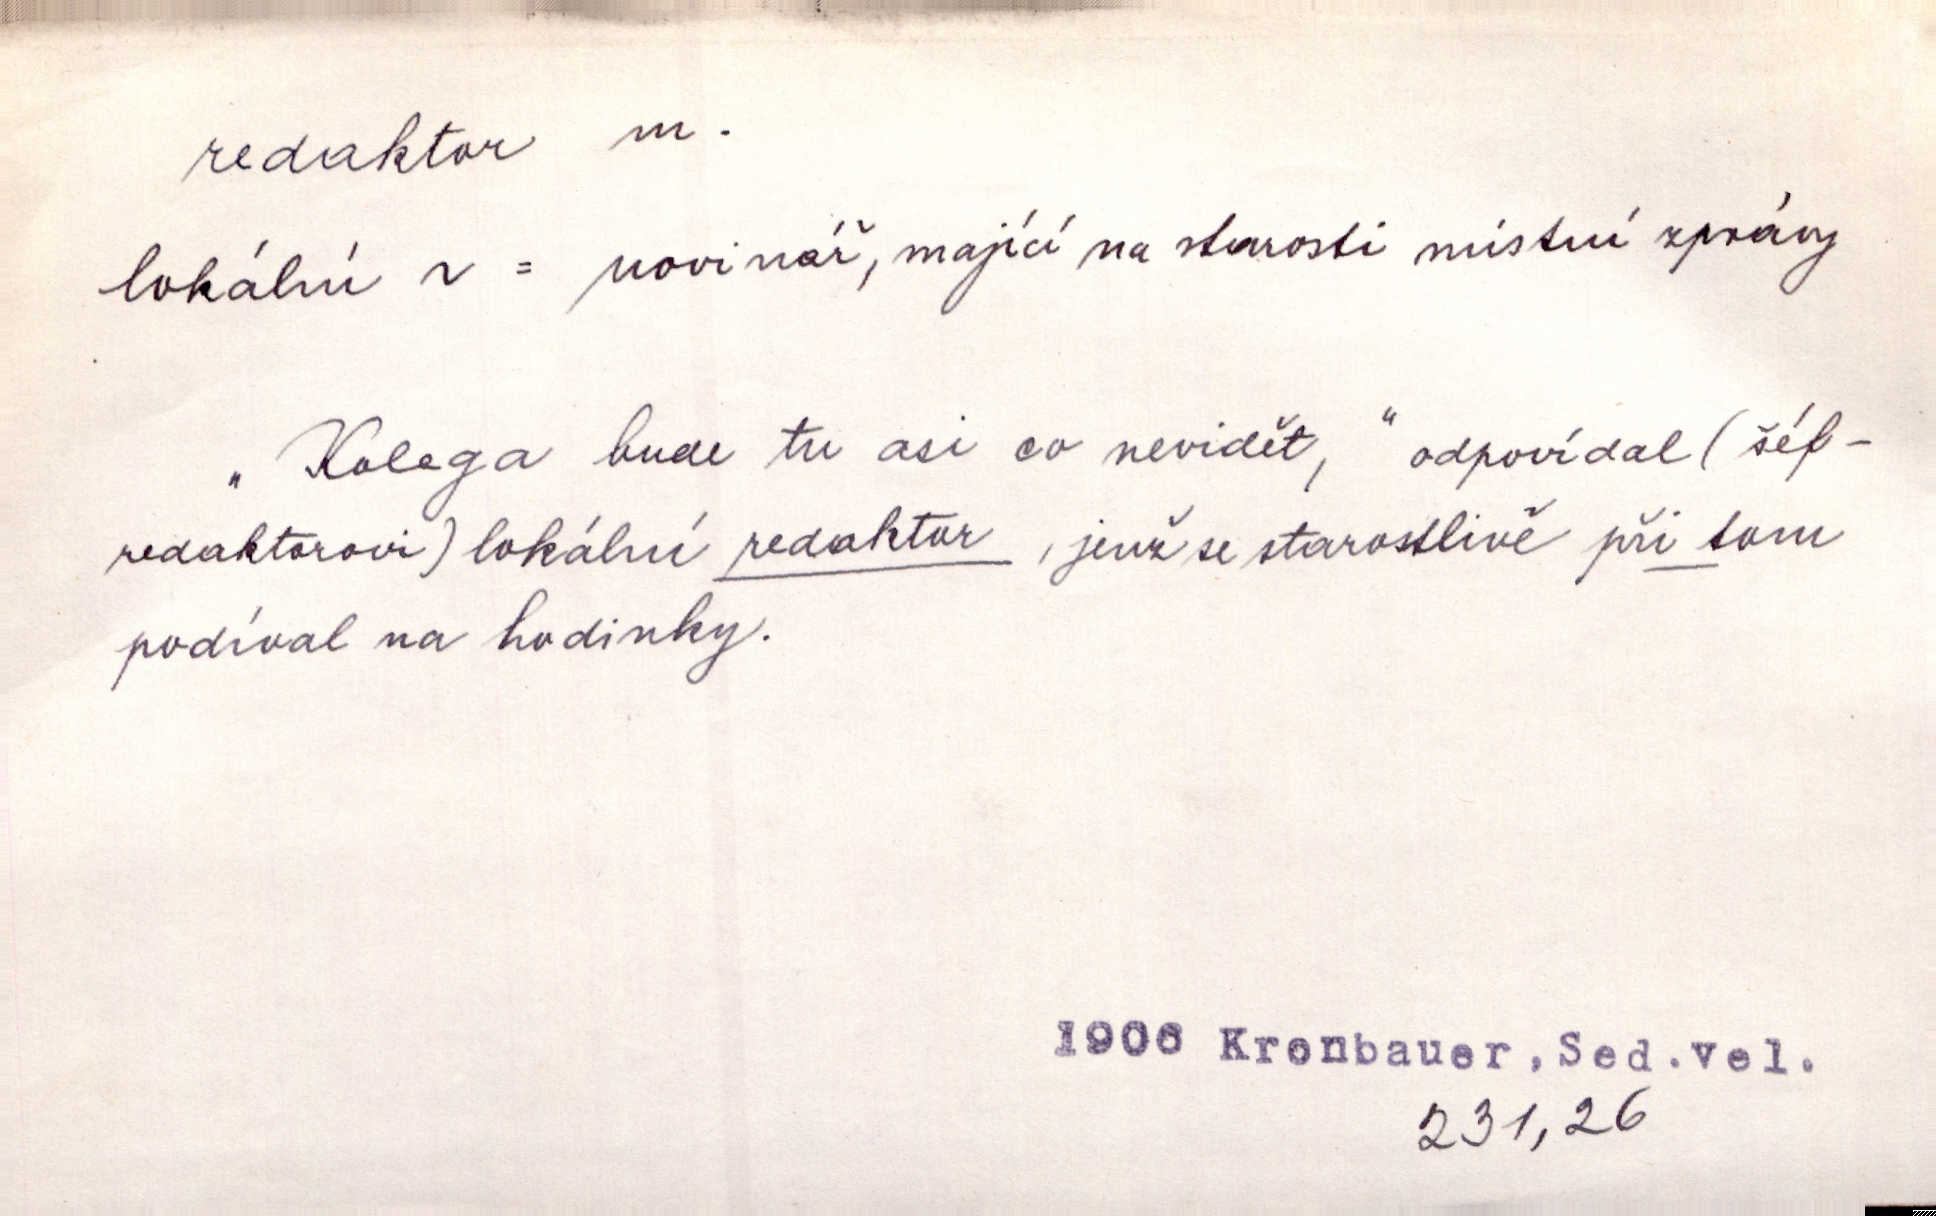 redaktor m.
lokální r = novinář, mající na starosti místní zprávy
„Kolega bude tu asi co nevidět,“ odpovídal (šéf-
redaktorovi) lokální redaktor, jenž se starostlivě při tom
podíval na hodinky.
1906 Kronbauer, Sed.vel.
231,26